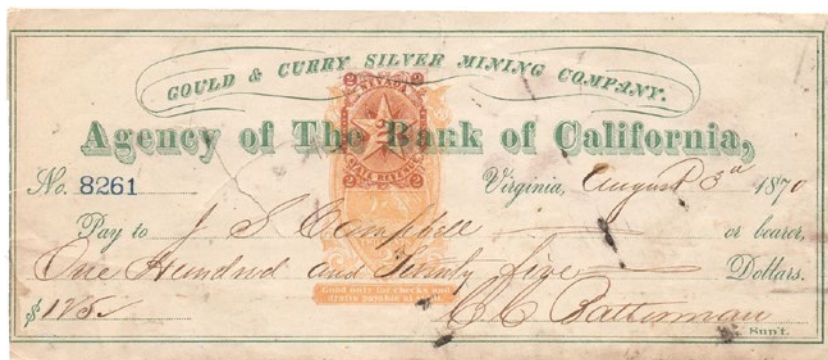 GOULD & CURRY SILVER MINING COMPANY.
2 NEVADA 2
Agency of The Bank of California,
2 STATE REVENUE 2
No. 8261 Virginia, August 3d 1870
Pay to J S Campbell or bearer,
One Hundred and Seventy five Dollars.
Good only for checks and
drafts payable at sight.
$ 175 C C Batterman
Sup't.